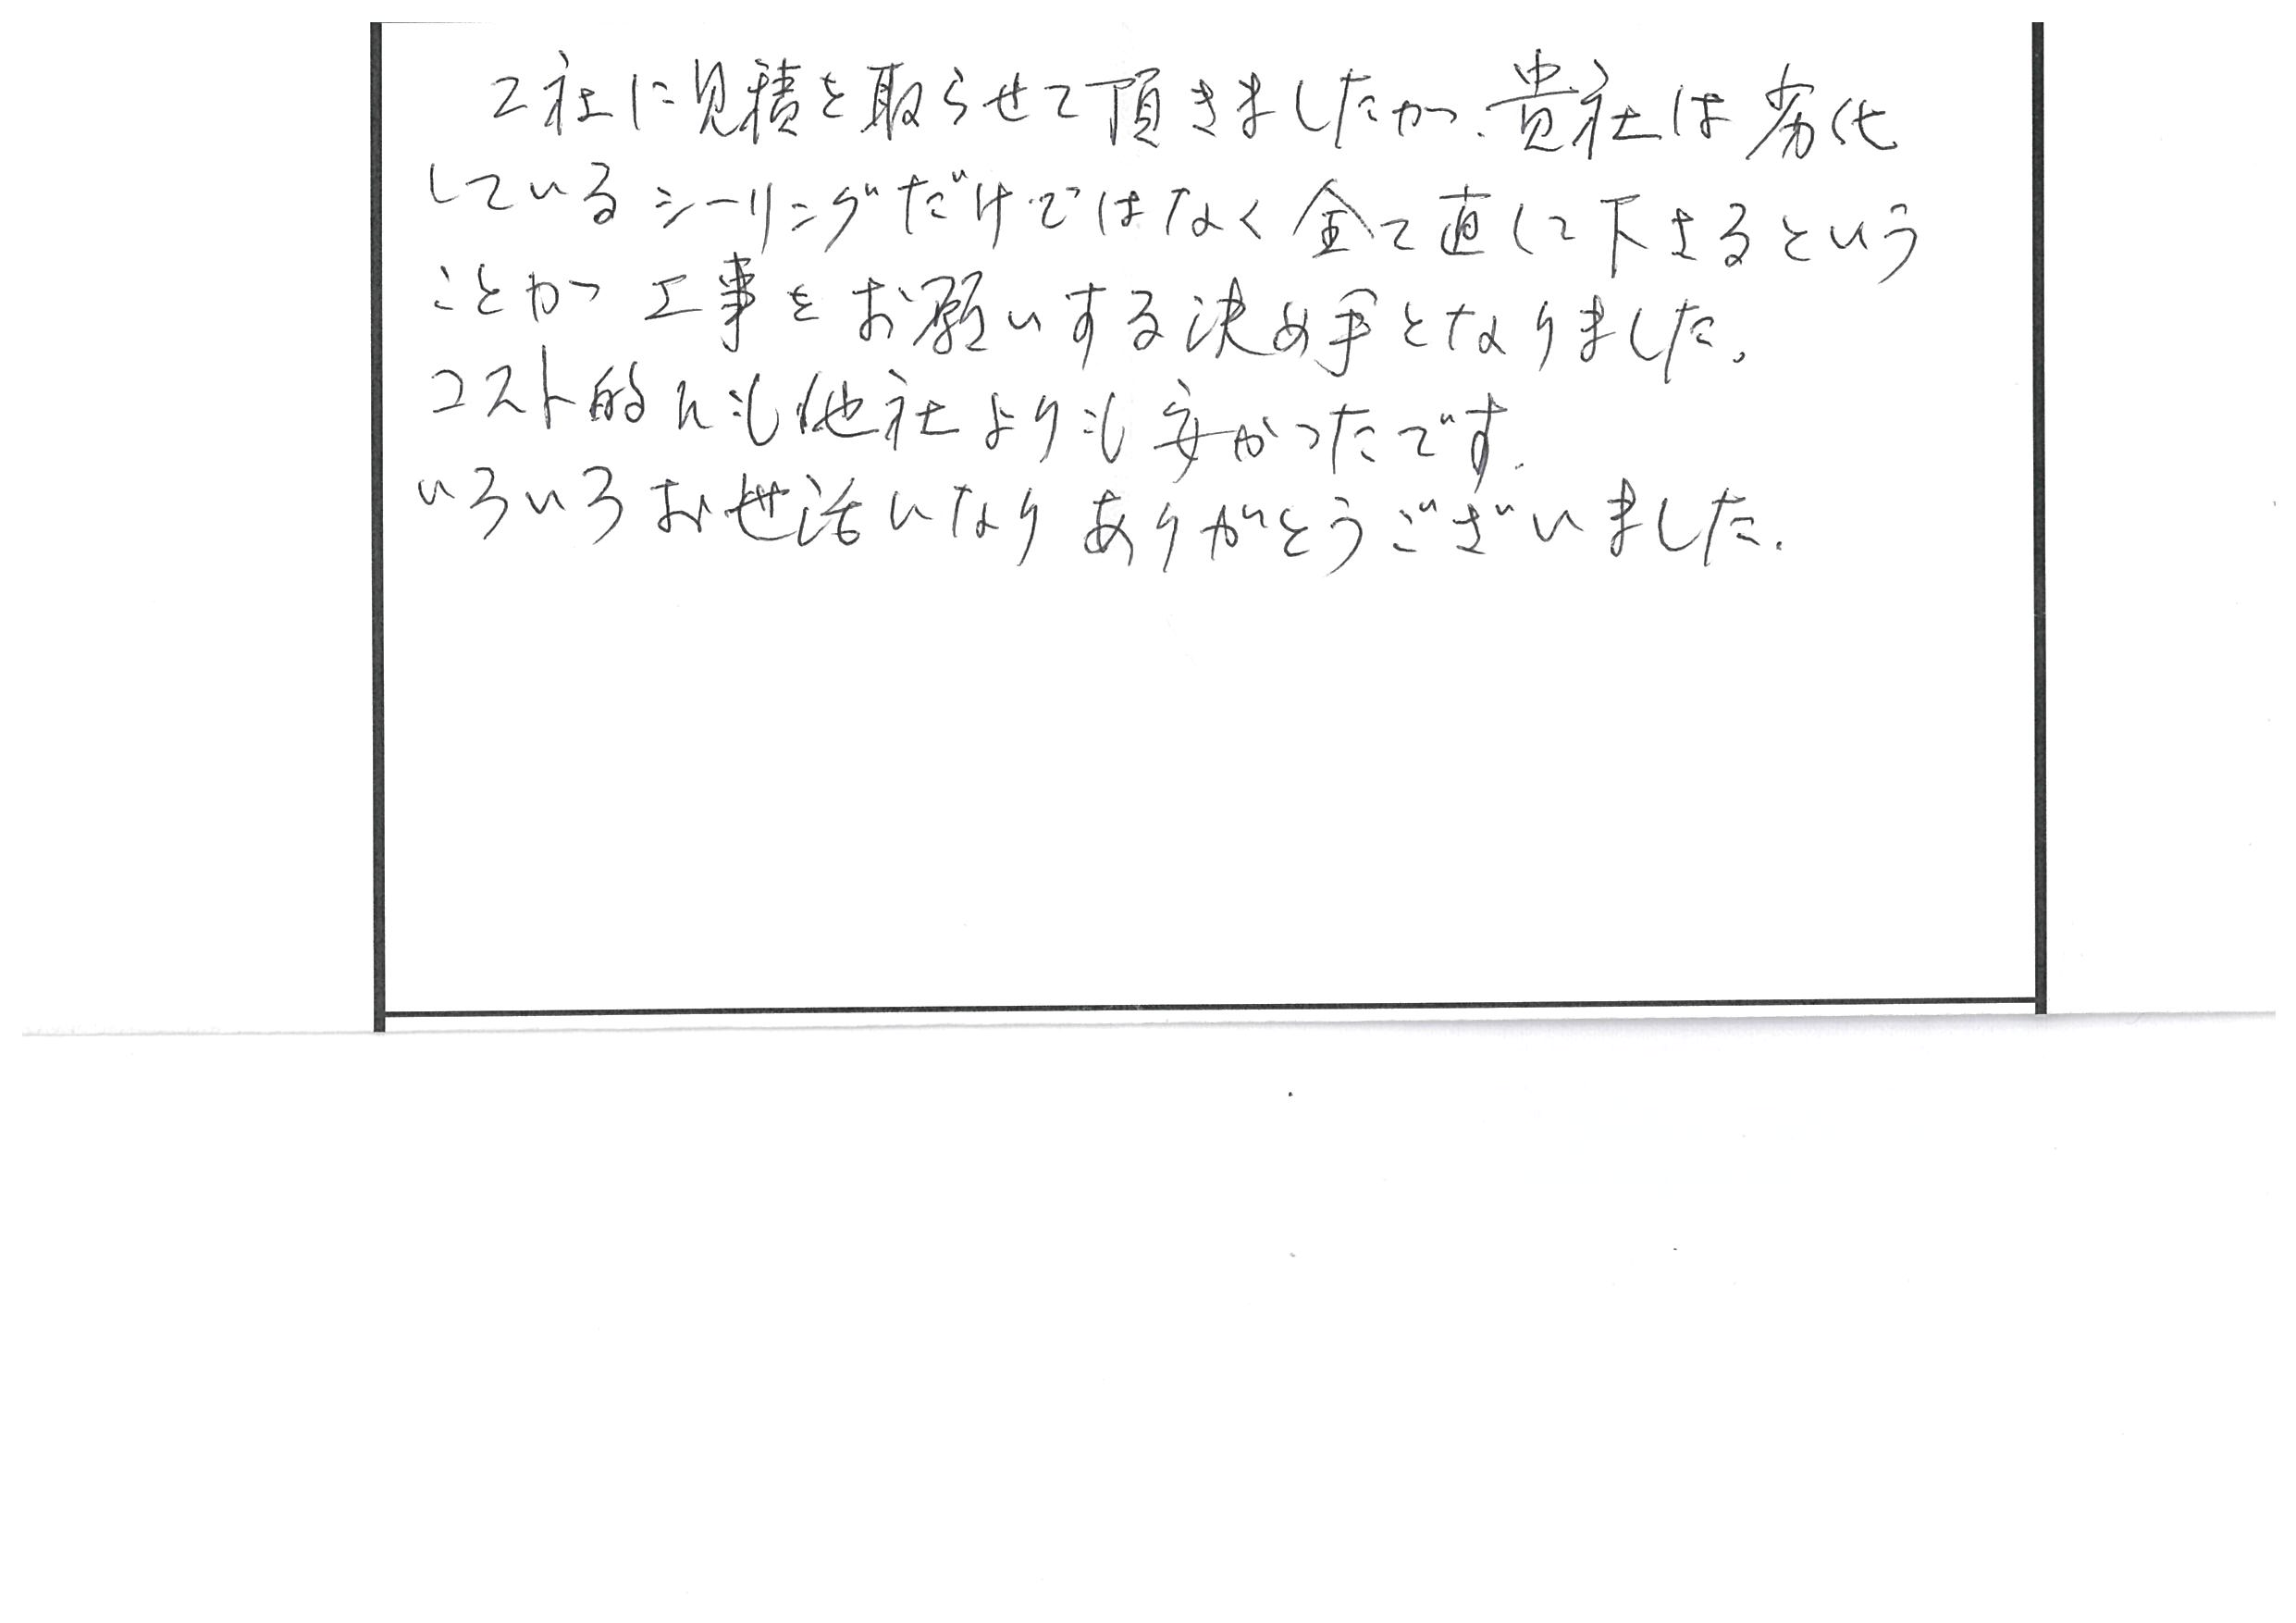 2社に見積を取らせて頂きましたが、貴社は劣化
しているシーリングだけではなく全て直して下さるという
ことが工事をお願いする決め手となりました。
コスト的にも他社よりも安かったです。
いろいろお世話になりありがとうございました。